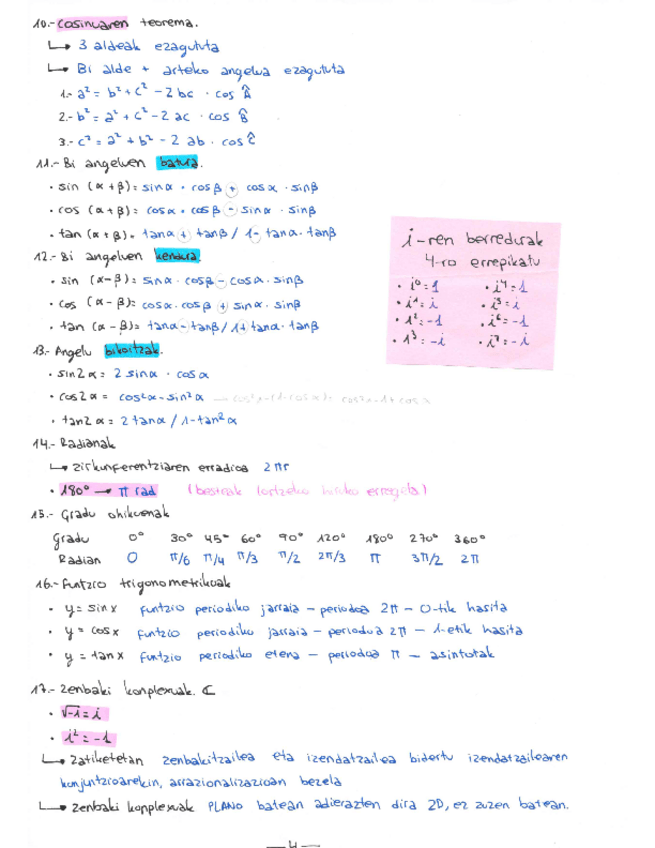 10.- Cosinuaren teorema.
↳ 3 aldeak ezagututa
↳ Bi alde + arteko angelua ezagututa
1.- a² = b² + c² - 2 bc · cos Â
2.- b² = a² + c² - 2 ac · cos B̂
3.- c² = a² + b² - 2 ab · cos Ĉ
11.- Bi angeluen batura.
· sin (α + β) = sin α · cos β + cos α · sin β
· cos (α + β) = cos α · cos β - sin α · sin β
· tan (α + β) = tan α + tan β / 1 - tan α · tan β
12.- Bi angeluen kendura.
· sin (α - β) = sin α · cos β - cos α · sin β
· cos (α - β) = cos α · cos β + sin α · sin β
· tan (α - β) = tan α - tan β / 1 + tan α · tan β
i-ren berredurak
4-ro errepikatu
· i⁰ = 1 · i⁴ = 1
· i¹ = i · i⁵ = i
· i² = -1 · i⁶ = -1
· i³ = -i · i⁷ = -i
13.- Angelu bikoitzak.
· sin 2α = 2 sin α · cos α
· cos 2α = cos² α - sin² α
· tan 2α = 2 tan α / 1 - tan² α
14.- Radianak
↳ zirkunferentziaren erradioa 2πr
· 180° → π rad (besteak lortzeko hiruko erregela)
15.- Gradu ohikoenak
Gradu 0° 30° 45° 60° 90° 120° 180° 270° 360°
Radian 0 π/6 π/4 π/3 π/2 2π/3 π 3π/2 2π
16.- Funtzio trigonometrikoak
· y = sin x funtzio periodiko jarraia - periodoa 2π - 0-tik hasita
· y = cos x funtzio periodiko jarraia - periodoa 2π - 1-etik hasita
· y = tan x funtzio periodiko etena - periodoa π - asintotak
17.- Zenbaki konplexuak. ℂ
· √-1 = i
· i² = -1
↳ Zatiketetan zenbakitzailea eta izendatzailea bidertu izendatzailearen
konjuntzioarekin, arrazionalizazioan bezela
↳ Zenbaki konplexuak PLANO batean adierazten dira 2D, ez zuzen batean.
— 4 —